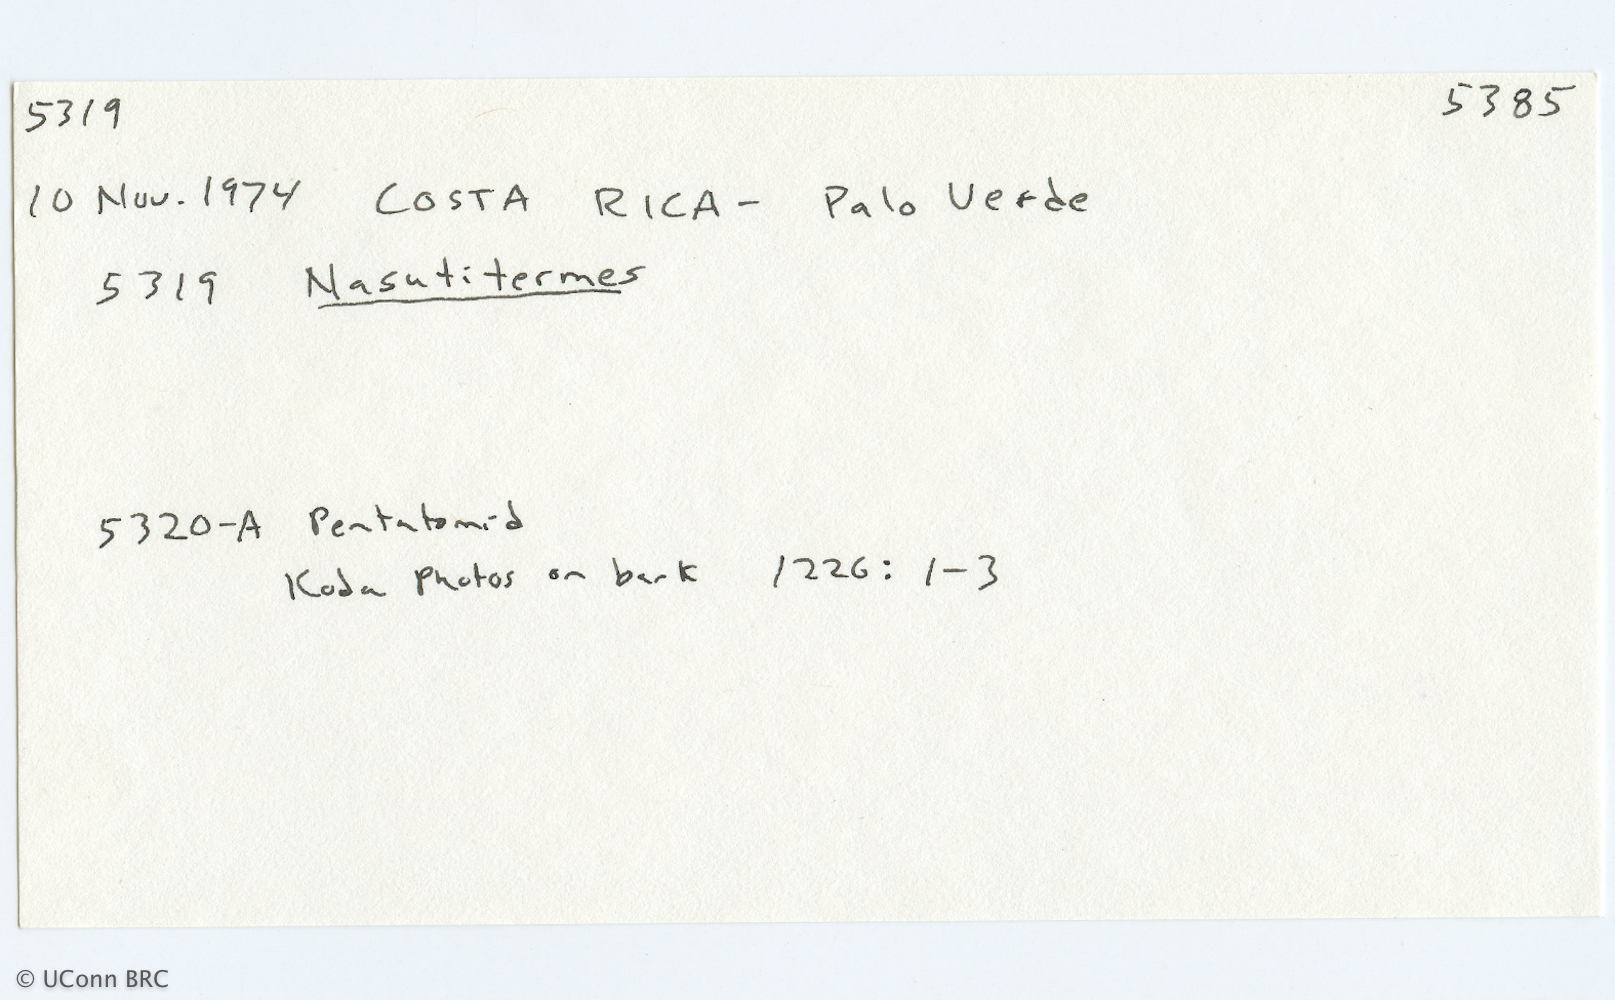 5319 5385
10 Nov. 1974 COSTA RICA - Palo Verde
5319 Nasutitermes
5320-A Pentatomid
Koda photos on bark 1226: 1-3
© UConn BRC